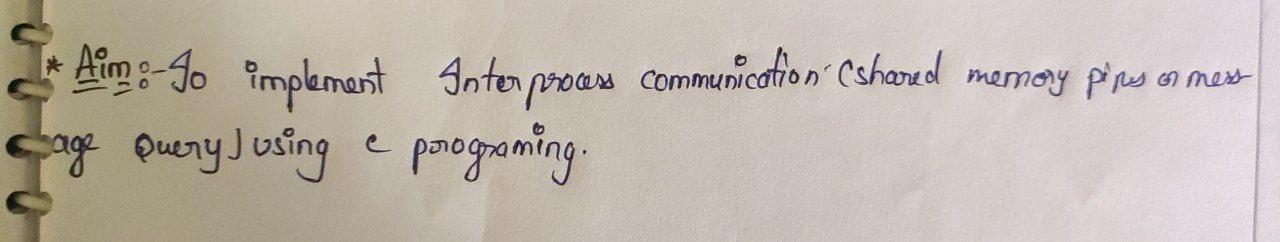 * Aim:- To implement Interprocess communication (shared memory pipes or mess-
age Query) using c programing.